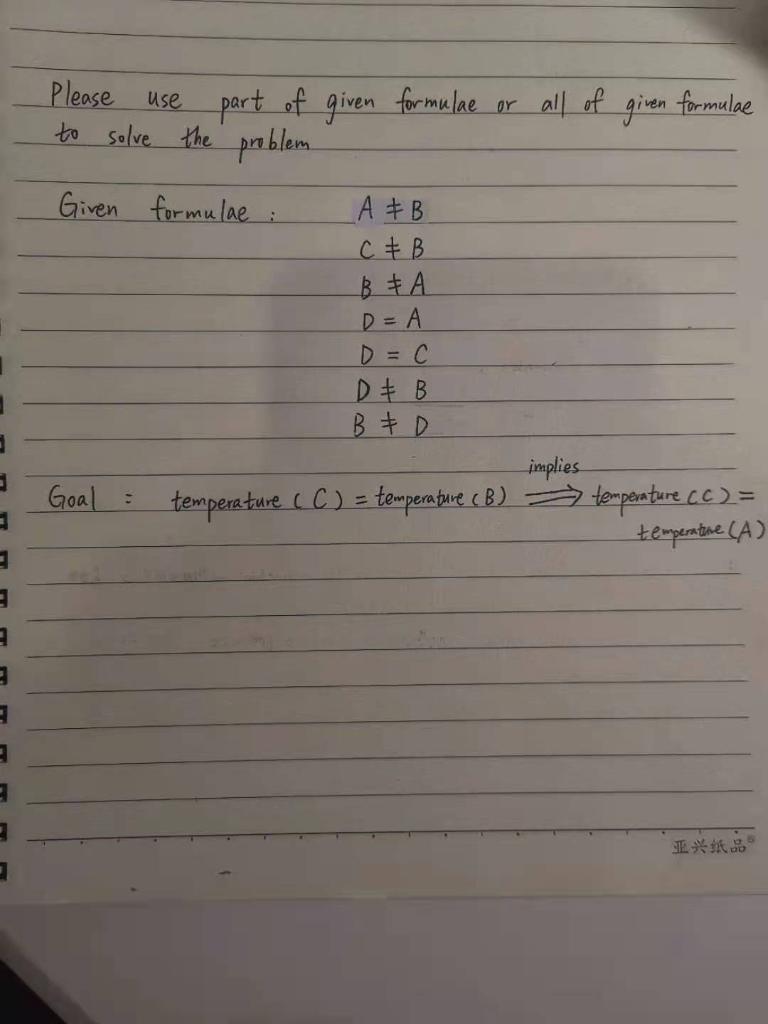 Please use part of given formulae or all of given formulae
to solve the problem
Given formulae : A ≠ B
C ≠ B
B ≠ A
D = A
D = C
D ≠ B
B ≠ D
implies
Goal : temperature (C) = temperature (B) ⟹ temperature (C) =
temperature (A)
亚兴纸品®